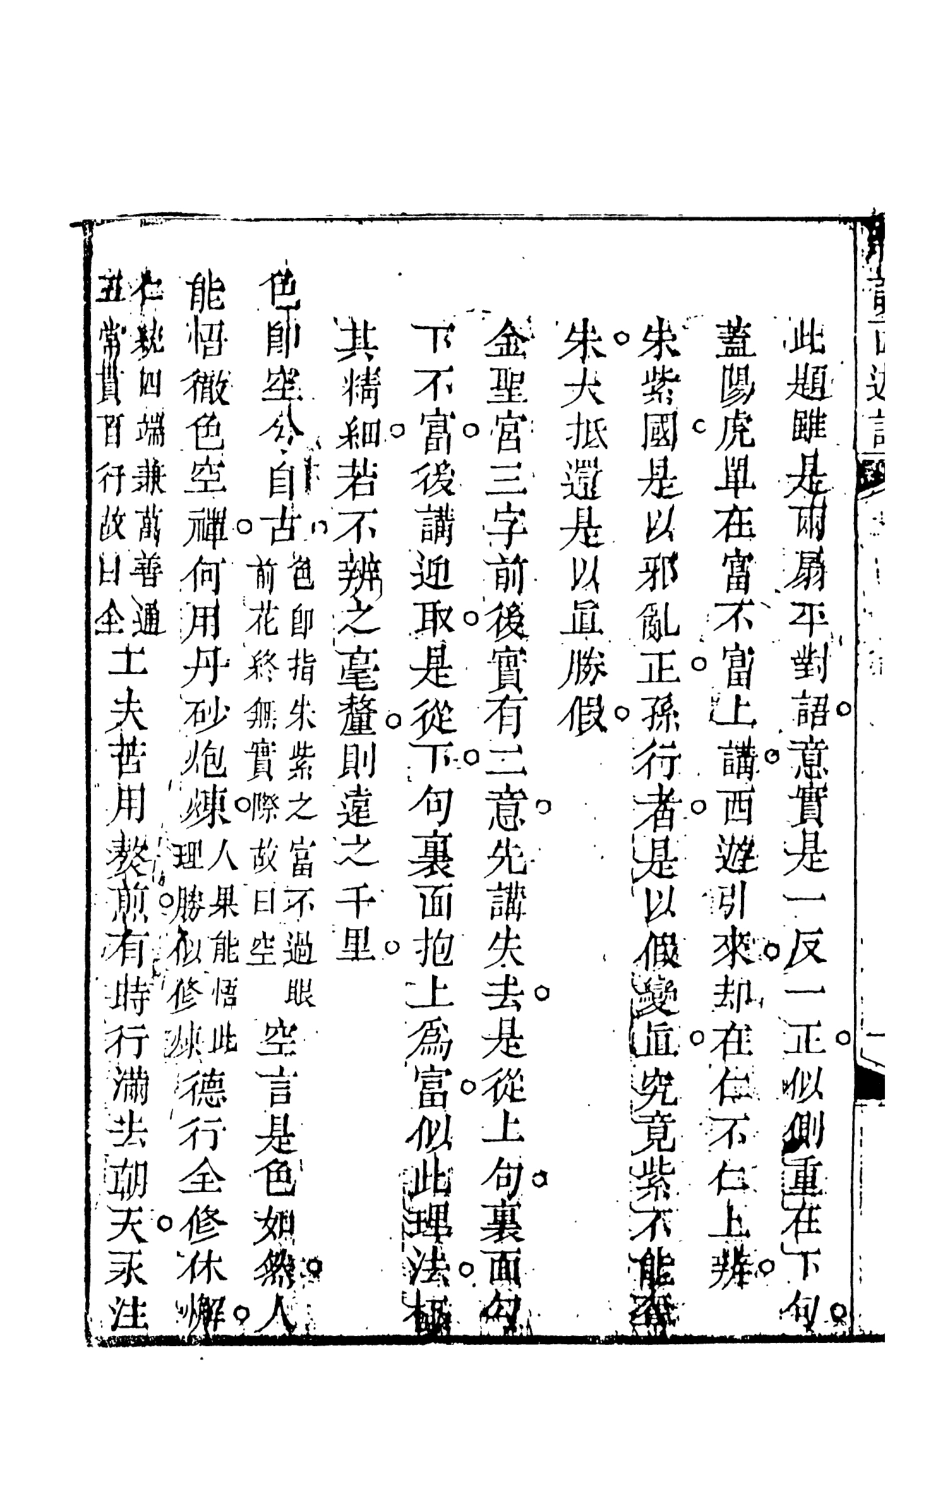 此題雖是兩扇平對語○意實是一反一正○似側重在下句○
蓋陽虎單在富不富上講○西遊引來○却在仁不仁上辨○
朱紫國○是以邪亂正○孫行者○是以假變眞○究竟紫不能奪
朱○大抵還是以眞勝假○
金聖宮三字前後實有二意○先講失去○是從上句○裏面勾
下不富○後講迎取○是從下句○裏面抱上爲富○似此理法○極
其精細○若不辨之毫釐○則遠之千里○
色卽空兮自古
色卽指朱紫之富不過眼
前花終無實際故曰空
空言是色如然○人
能悟徹色空禪○何用丹砂炮煉○
人果能悟此
理勝似修煉
德行全修休懈○
仁統四端兼萬善通
五常貫百行故曰全
工夫苦用熬煎○有時行滿去朝天○永注